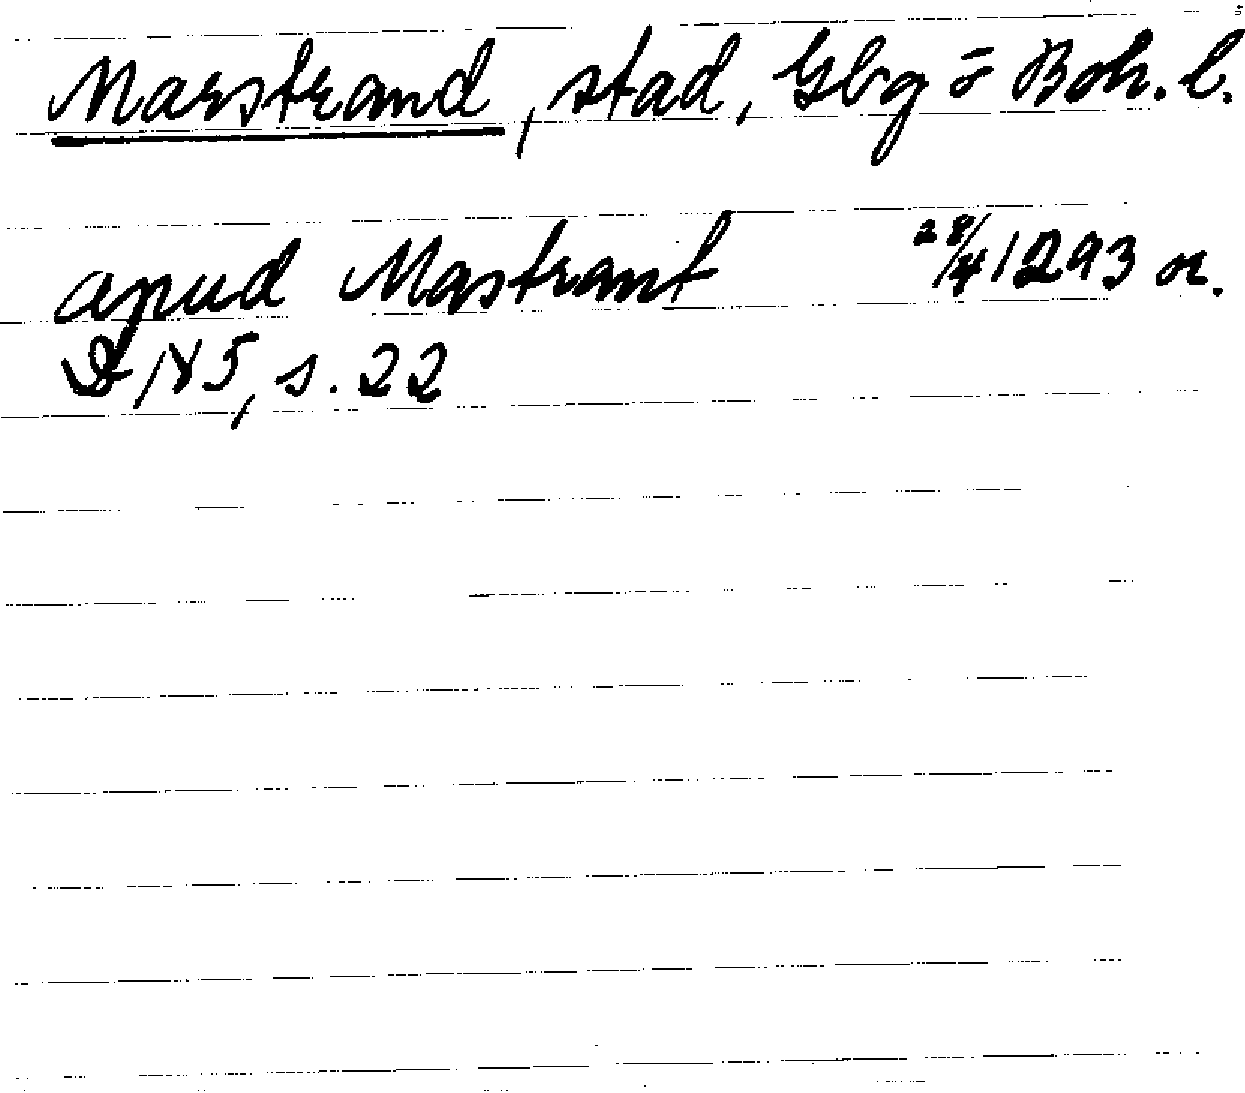 Marstrand, stad, Gbg o Boh. l.
apud Mastrant 28/4 1293 or.
DN 5, s. 22